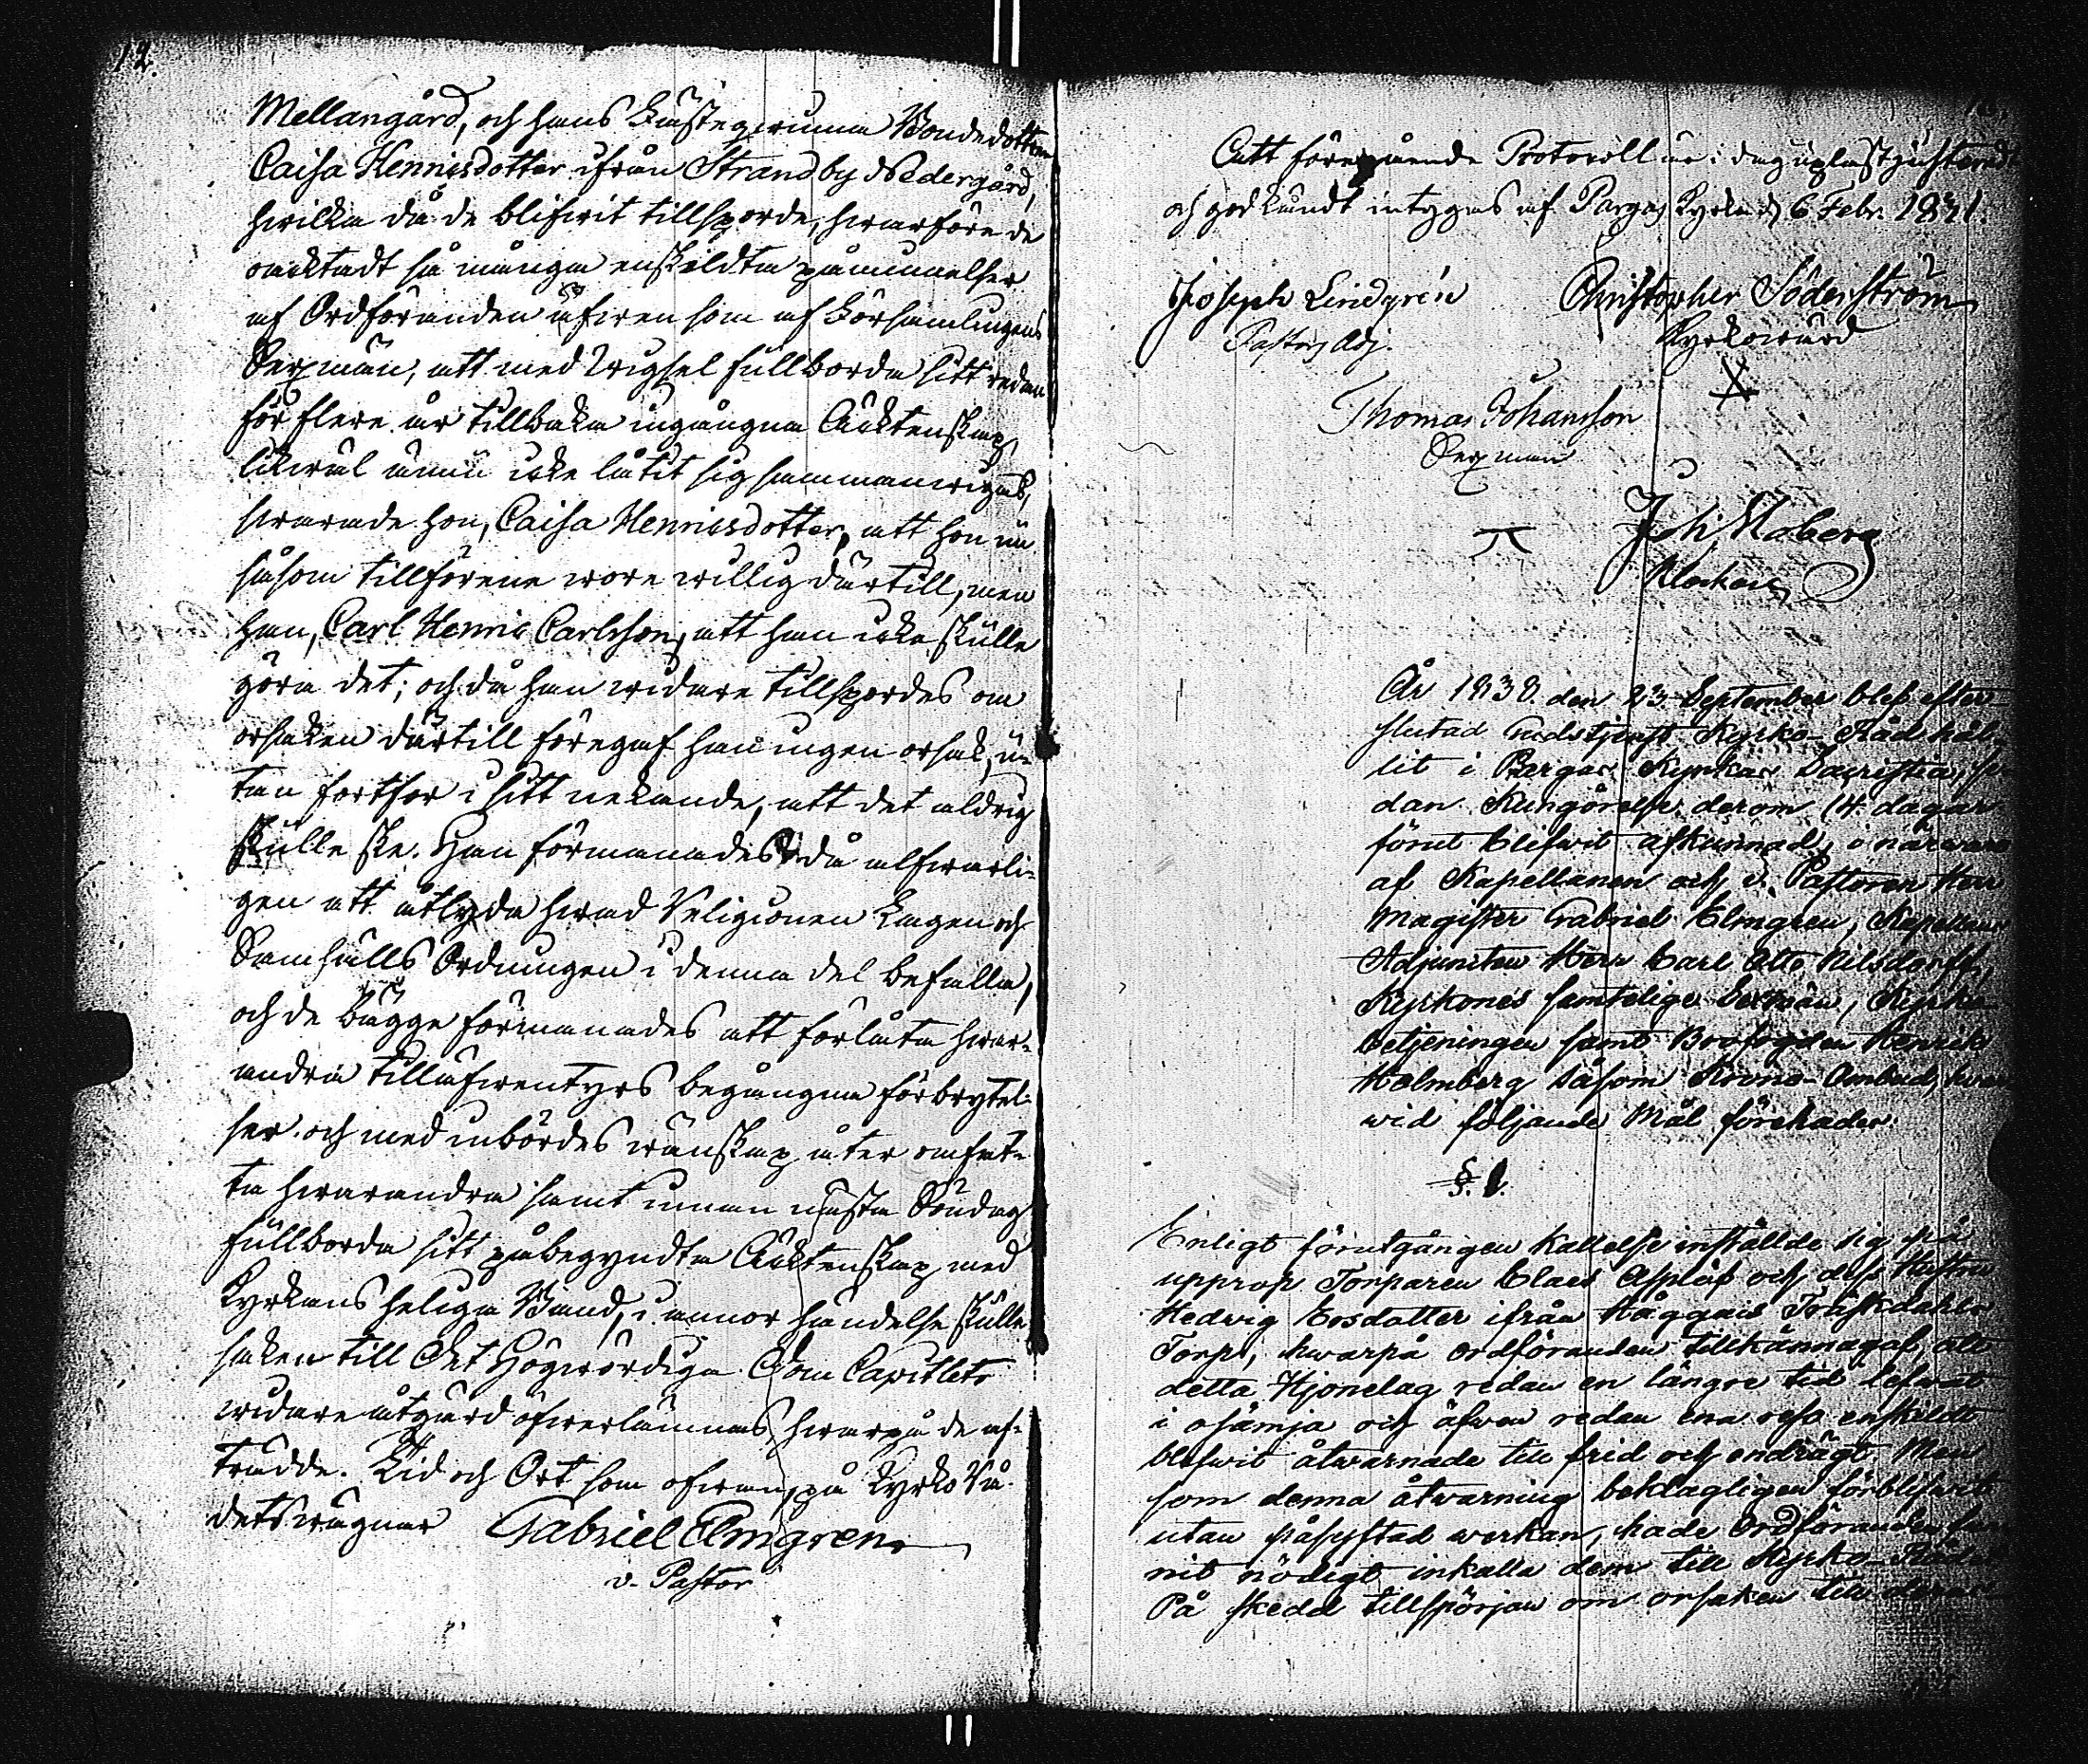 12.
Mellangård, och hans Fästeqwinna Bondedottren
Caisa Henricsdotter ifrån Strandby Nedergård,
hwilka då de blifwit tillsporde, hwarföre de
oacktadt så många enskildta påminnelser
af Ordföranden äfwen som af Församlingens
Sexmän, att med Wigsel fullborda sitt redan
för flere år tillbaka ingångna Äcktenskap,
likwäl ännu icke låtit sig sammanwigas,
swarade hon, Caisa Henricsdotter, att hon nu
såsom tillförene wore willig därtill, men
han, Carl Henric Carlsson, att han icke skulle
göra det; och då han widare tillspordes om
orsaken därtill föregaf han ingen orsak, u-
tan fortfor i sitt nekande, att det aldrig
skulle ske. Han förmanades då alfwarli-
gen att åtlyda hwad Religionen Lagen och
Samhälls Ordningen i denna del befalla,
och de bägge förmanades att förlåta hwar-
andra tilläfwentyrs begångna förbrytel-
ser och med inbördes wänskap åter omfat-
ta hwarandra samt innan nästa Söndag
fullborda sitt påbegyndta Äcktenskap med
Kyrkans heliga Band, i annor händelse skulle
saken till Det Högwördiga Dom Capitlets
widare åtgärd öfwerlämnas, hwarpå de af-
trädde. Tid och Ort som ofwan, på Kyrko Rå-
dets wägnar Gabriel Elmgren
v. Pastor
Att föregående Protocoll är i dag upläst justeradt
och godkändt intygas af Pargas Kyrka d. 6 Febr. 1831.
Joseph Lindgrén Christopher Söderström
Pastors Adj. Kyrkowärd
Thomas Johansson
Sexman
Joh Moberg
Klockare
År 1838. den 23. September blef efter
slutad Gudstjenst Kyrko-Råd hål-
lit i Pargas Kyrkas Sacristia, se-
dan Kungörelse derom 14. dagar
förut blifwit afkunnad, i närwaro
af Kapellanen och v. Pastoren Herr
Magister Gabriel Elmgren, Kapellans
Adjuncten Herr Carl Otto Nilsdorff,
Kyrkones samtelige Sexmän, Kyrko-
betjeningen samt Brofogden Henrik
Holmberg såsom Krono-Ombud, hwar-
wid följande Mål förehades
§. 1.
Enligt förutgången kallelse inställde sig på
upprop Torparen Claes Asplöf och dess Hustru
Hedwig Ersdotter ifrån Häggnäs Träskdahls
Torp, hwarpå ordföranden tillkännagaf, att
detta Hjonelag redan en längre tid lefwat
i osämja och äfwen redan ena resa enskildt
blifwit åtwarnade till frid och endrägt. Men
som denna åtwarning beklagligen förblifwit
utan påsyftad werkan, hade Ordföranden fun-
nit nödigt inkalla dem till Kyrko-Rådet
På skedd tillspörjan om orsaken till deras